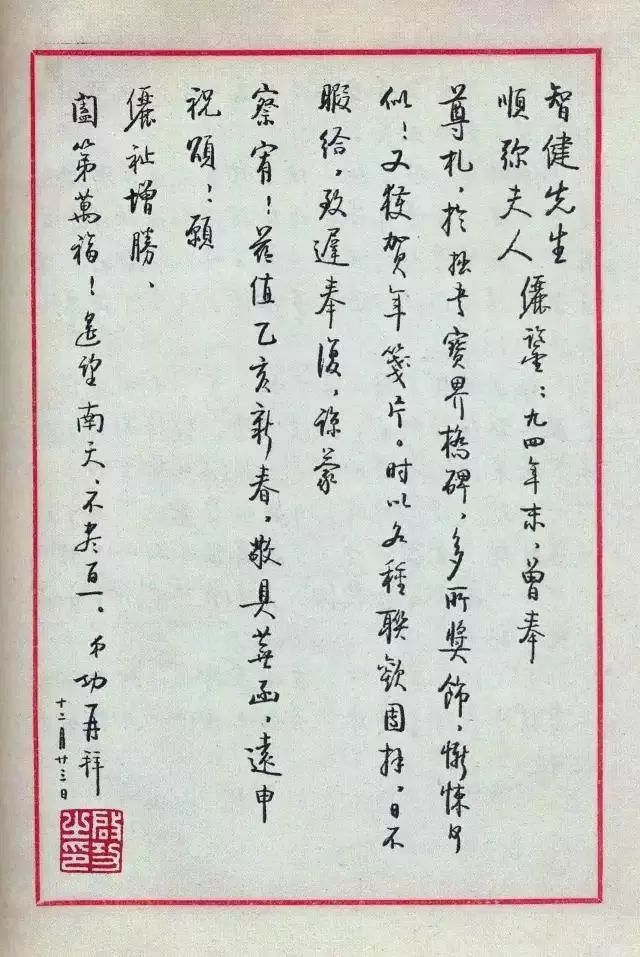 智健先生
順弥夫人 儷鑒：九四年末，曾奉
尊札，於拙書寶界橋碑，多所獎飾，慚悚何
似！又獲賀年箋片。時以各種聯歡團拜，日不
暇給，致遲奉復，諒蒙
察宥！茲值乙亥新春，敬具蕪函，遠申
祝頌；願
儷祉增勝、
闔第萬福！遙望南天、不盡百一。弟功再拜
十二月廿三日
啟功之印